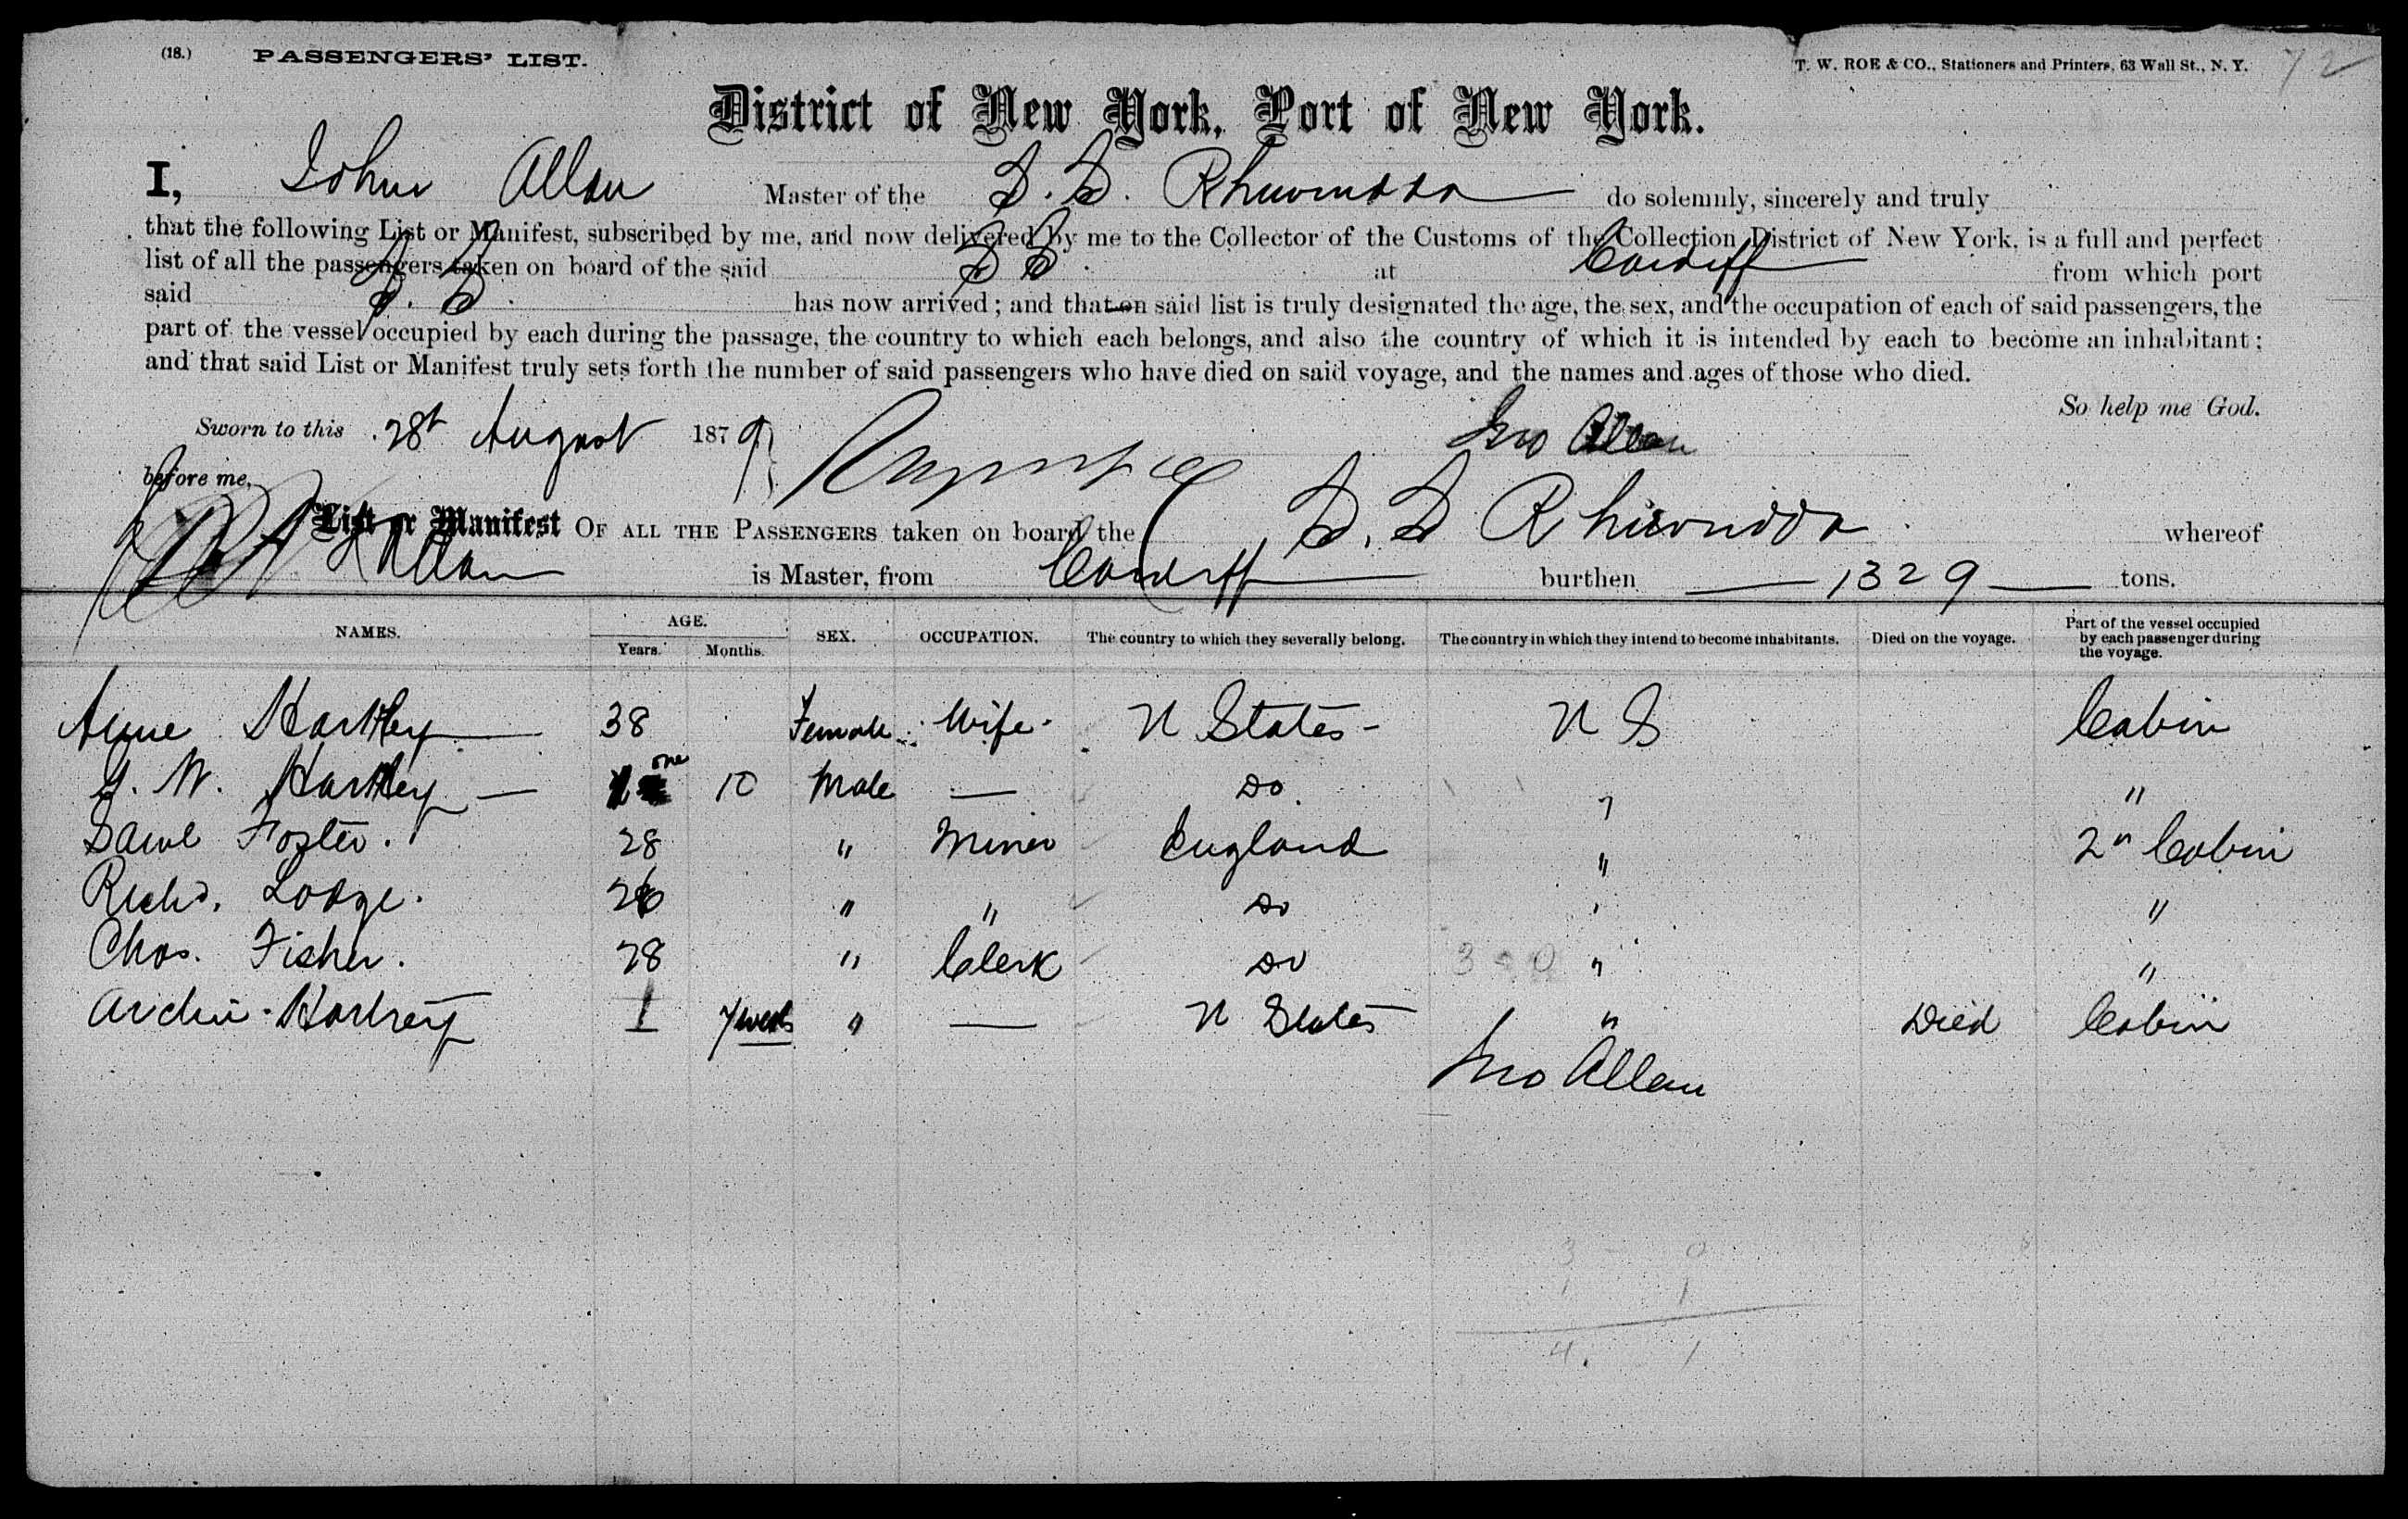 (18.) PASSENGERS' LIST. T. W. ROE & CO., Stationers and Printers, 63 Wall St., N. Y. 72
District of New York, Port of New York.
I, John Allan Master of the S.S. Rhiwindda do solemnly, sincerely and truly
that the following List or Manifest, subscribed by me, and now delivered by me to the Collector of the Customs of the Collection District of New York, is a full and perfect
list of all the passengers taken on board of the said S S. at Cardiff from which port
said S. S. has now arrived; and that on said list is truly designated the age, the sex, and the occupation of each of said passengers, the
part of the vessel occupied by each during the passage, the country to which each belongs, and also the country of which it is intended by each to become an inhabitant;
and that said List or Manifest truly sets forth the number of said passengers who have died on said voyage, and the names and ages of those who died.
So help me God.
Sworn to this 28t August 1879 Jno Allan
before me,
List or Manifest OF ALL THE PASSENGERS taken on board the S. S Rhiwindda whereof
Allan is Master, from Cardiff burthen 1329 tons.
NAMES. AGE. Years. Months. SEX. OCCUPATION. The country to which they severally belong. The country in which they intend to become inhabitants. Died on the voyage. Part of the vessel occupied by each passenger during the voyage.
Anne Hartley 38 Female Wife U States U S Cabin
W. Hartley one 10 Male — Do " "
Saml Foster. 28 " Miner England " 2n Cabin
Richd. Lodge. 26 " " Do " "
Chas. Fisher. 28 " Clerk Do " "
Archie Hartley 7 weeks " — U States " Died Cabin
Jno Allan
3 0
1 1
4. 1